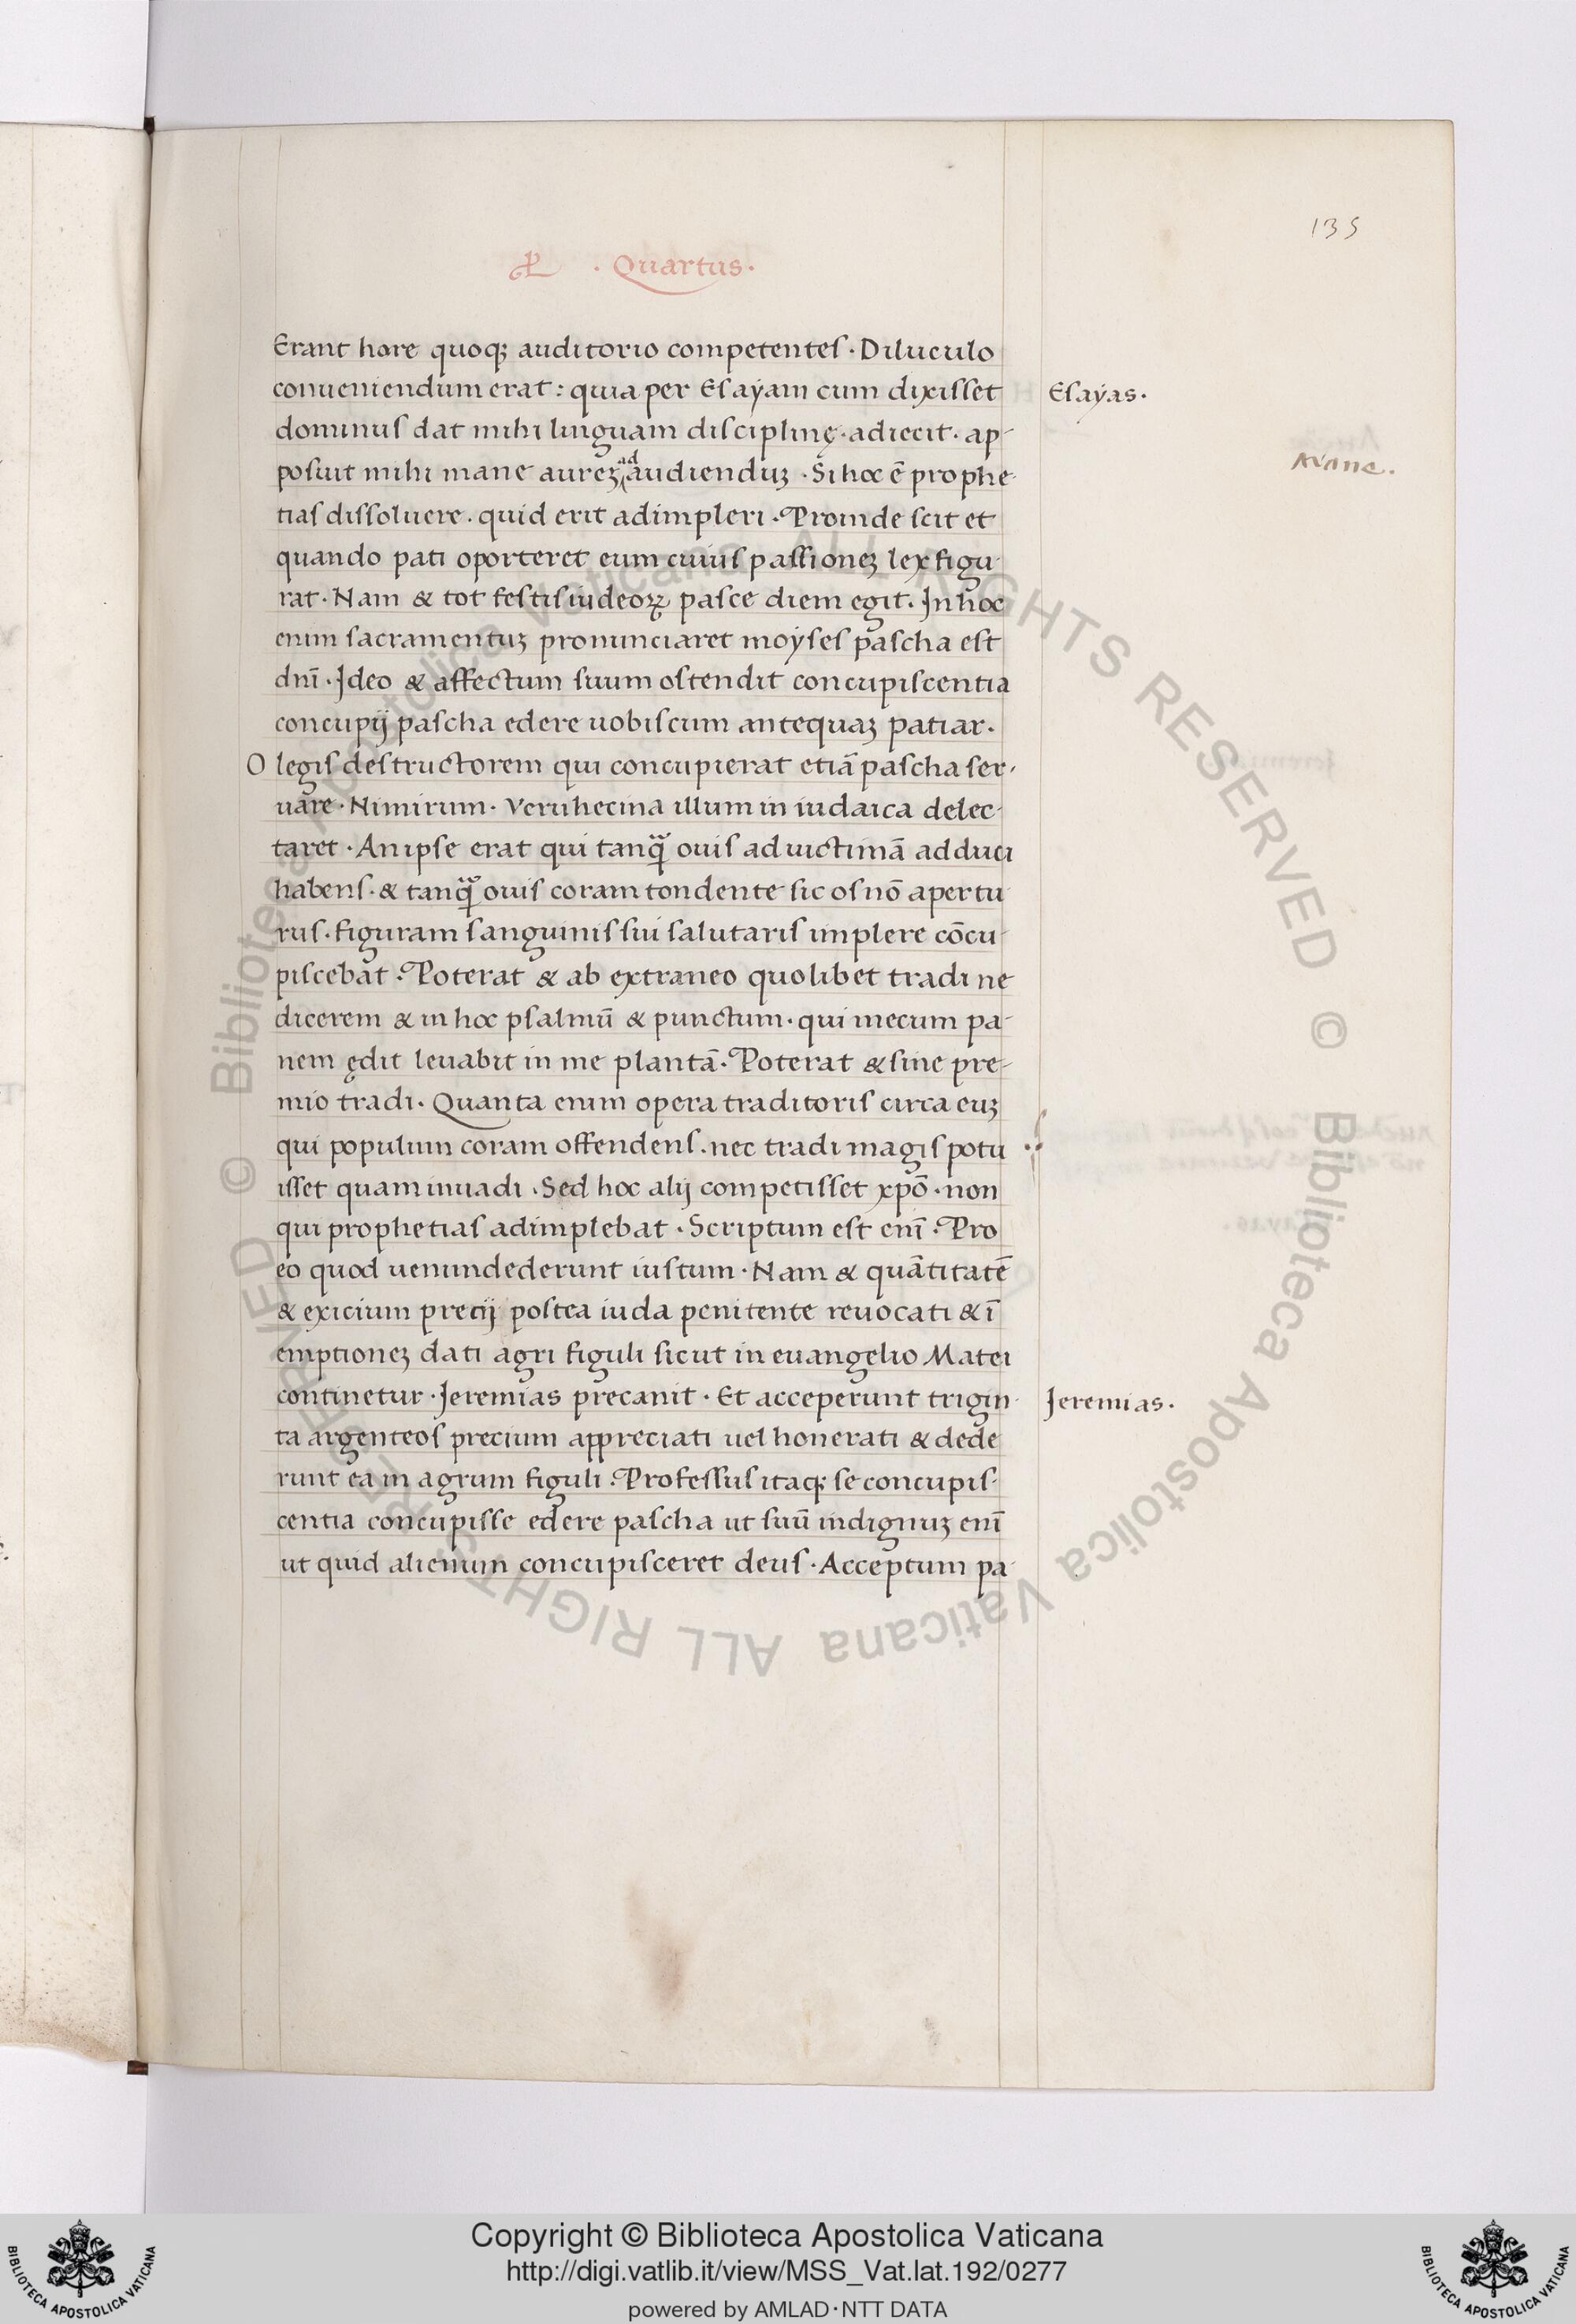 135
· Quartus ·
Erant hore quoq; auditorio competentes · Diluculo
conueniendum erat : quia per Esaÿam cum dixisset
Esaÿas ·
dominus dat mihi linguam disciplinę · adiecit · ap-
posuit mihi mane aureꝫ ad audienduꝫ · Si hoc ē prophe-
Mane ·
tias dissoluere · quid erit adimpleri · Proinde scit et
quando pati oporteret eum cuius passioneꝫ lex figu-
rat · Nam & tot festis iudeoꝝ pasce diem egit · In hoc
enim sacramentuꝫ pronunciaret moÿses pascha est
dnī · Ideo & affectum suum ostendit concupiscentia
concupij pascha edere uobiscum antequaꝫ patiar ·
O legis destructorem qui concupierat etiā pascha ser-
uare · Nimirum · Veruhecina illum in iudaica delec-
taret · An ipse erat qui tanqᷓ ouis ad uictimā adduci
habens · & tanqᷓ ouis coram tondente sic os nō apertu
rus · figuram sanguinis sui salutaris implere cōcu-
piscebat · Poterat & ab extraneo quolibet tradi ne
dicerem & in hoc psalmū & punctum · qui mecum pa-
nem ędit leuabit in me plantā · Poterat & sine pre-
mio tradi · Quanta enim opera traditoris circa euꝫ
qui populum coram offendens · nec tradi magis potu
isset quam inuadi · Sed hoc alij competisset xpō · non
qui prophetias adimplebat · Scriptum est enī · Pro
eo quod uenundederunt iustum · Nam & quātitatē
& exicium precij postea iuda penitente reuocati & ī
emptioneꝫ dati agri figuli sicut in euangelio Matei
continetur · Jeremias precanit · Et acceperunt trigin-
Jeremias ·
ta argenteos precium appreciati uel honerati & dede
runt ea in agrum figuli · Professus itaq; se concupis-
centia concupisse edere pascha ut suū indignuꝫ enī
ut quid alienum concupisceret deus · Acceptum pa-
© Biblioteca Apostolica Vaticana ALL RIGHTS RESERVED © Biblioteca Apostolica Vaticana ALL RIGHTS RESERVED
Copyright © Biblioteca Apostolica Vaticana
http://digi.vatlib.it/view/MSS_Vat.lat.192/0277
powered by AMLAD·NTT DATA
BIBLIOTECA APOSTOLICA VATICANA
BIBLIOTECA APOSTOLICA VATICANA